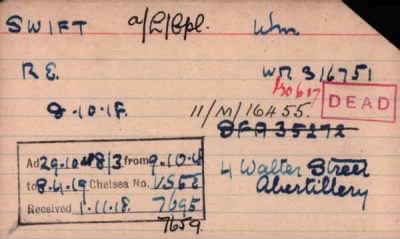 SWIFT a/L/Cpl. Wm.
R.E. WR 316751
DEAD
8-10-18. 11/M/16455.
4 Walter Street
Abertillery
Ad 29.10.18 from 9.10.18
to 8.4.19 Chelsea No.
Received 1.11.18. 7695
7659.